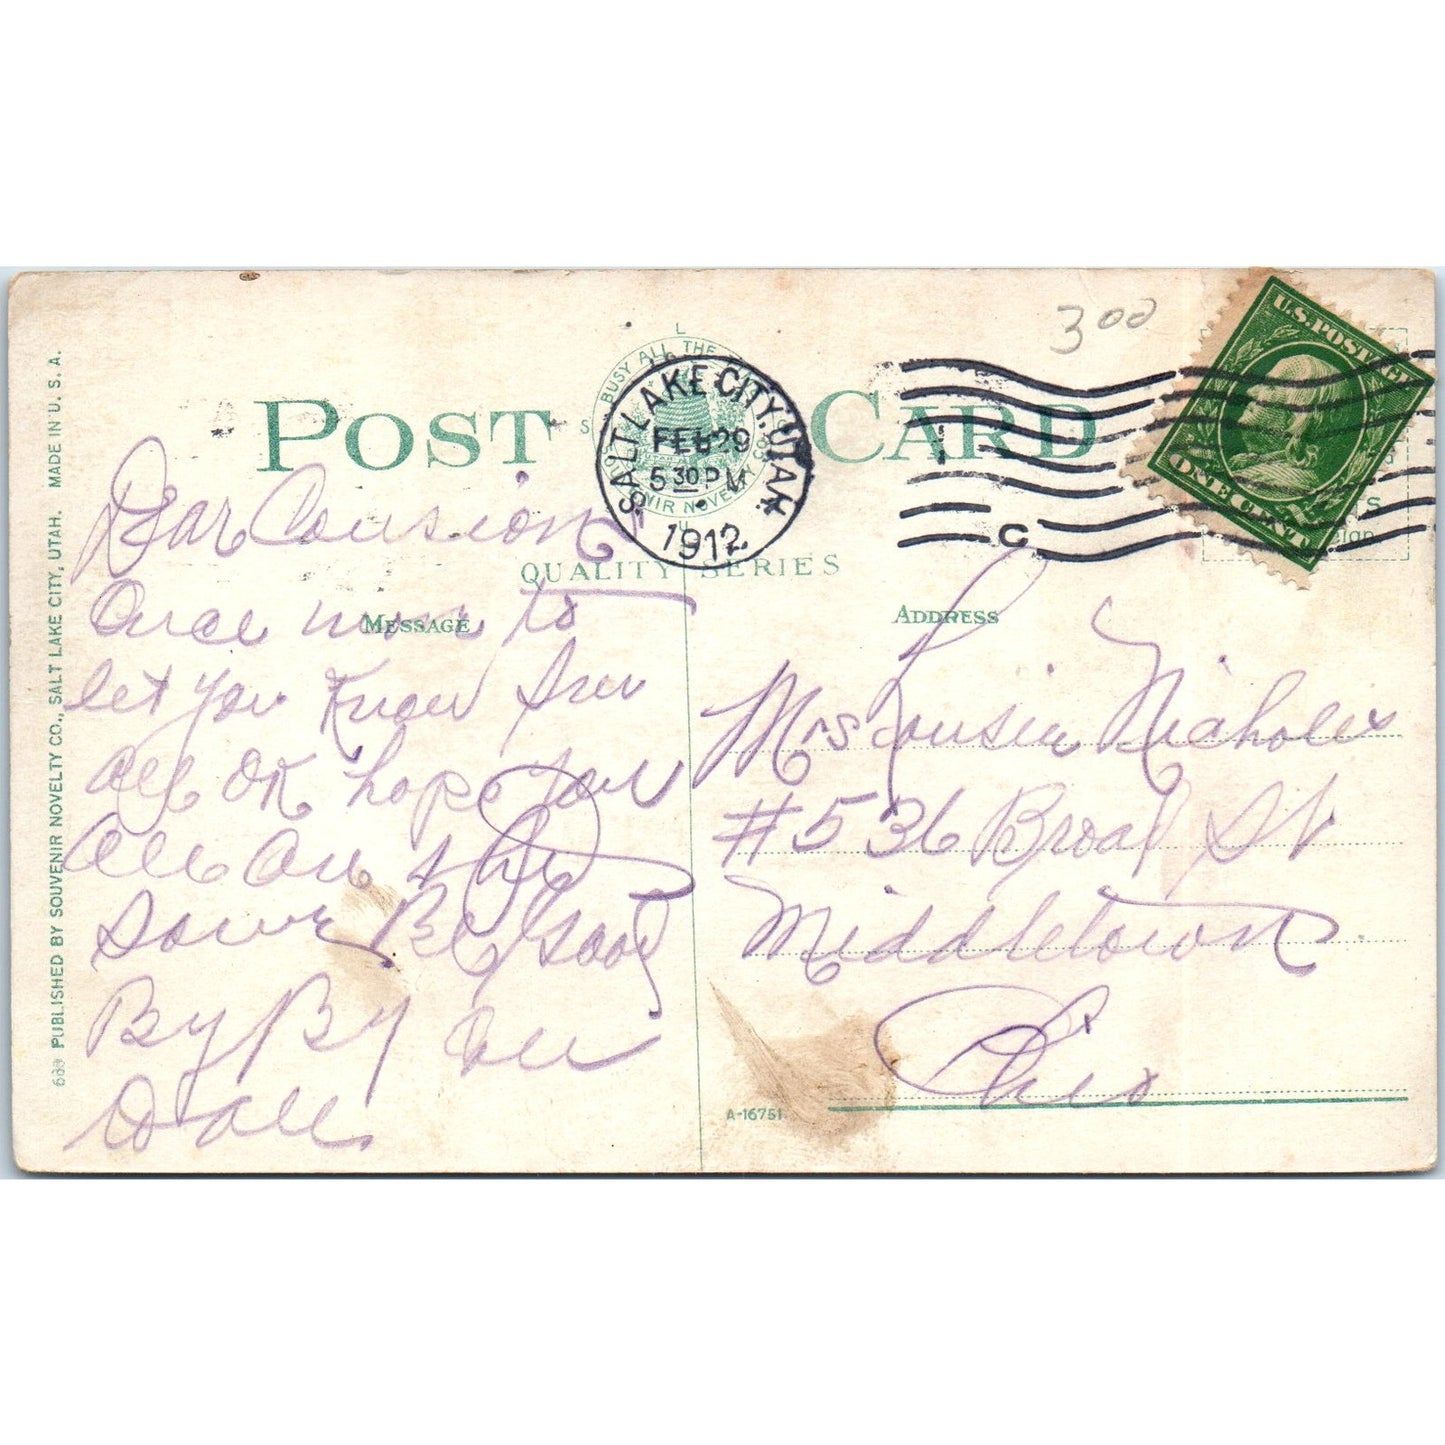 3 00
U.S. POSTAGE
ONE CENT
L
BUSY ALL THE
POST CARD
SALT LAKE CITY, UTAH.
FEB 29
5 30 PM
1912
C
QUALITY SERIES
MESSAGE
Dear Cousion
Once more to
let you Know I
all OK hope you
all are the
Same
By By
ADDRESS
Mrs Lousie Nicholes
#536 Broad St
Middletown
Ohio
A-16751
688 PUBLISHED BY SOUVENIR NOVELTY CO., SALT LAKE CITY, UTAH. MADE IN U. S. A.